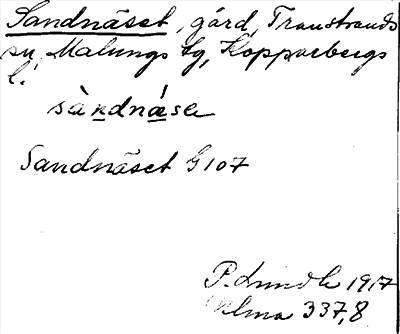 Sandnäset, gård, Transtrands
sn, Malungs tg, Kopparbergs
l.
sàndnäsa
Sandnäset G 107
P. Lindh 1917
Ulma 337,8